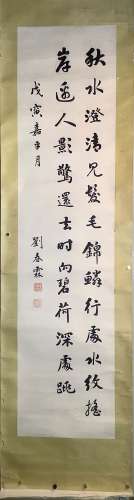 秋水澄清見髮毛錦鱗行處水紋搖
岸邊人影驚還去时向碧荷深處跳
戊寅嘉平月
劉春霖